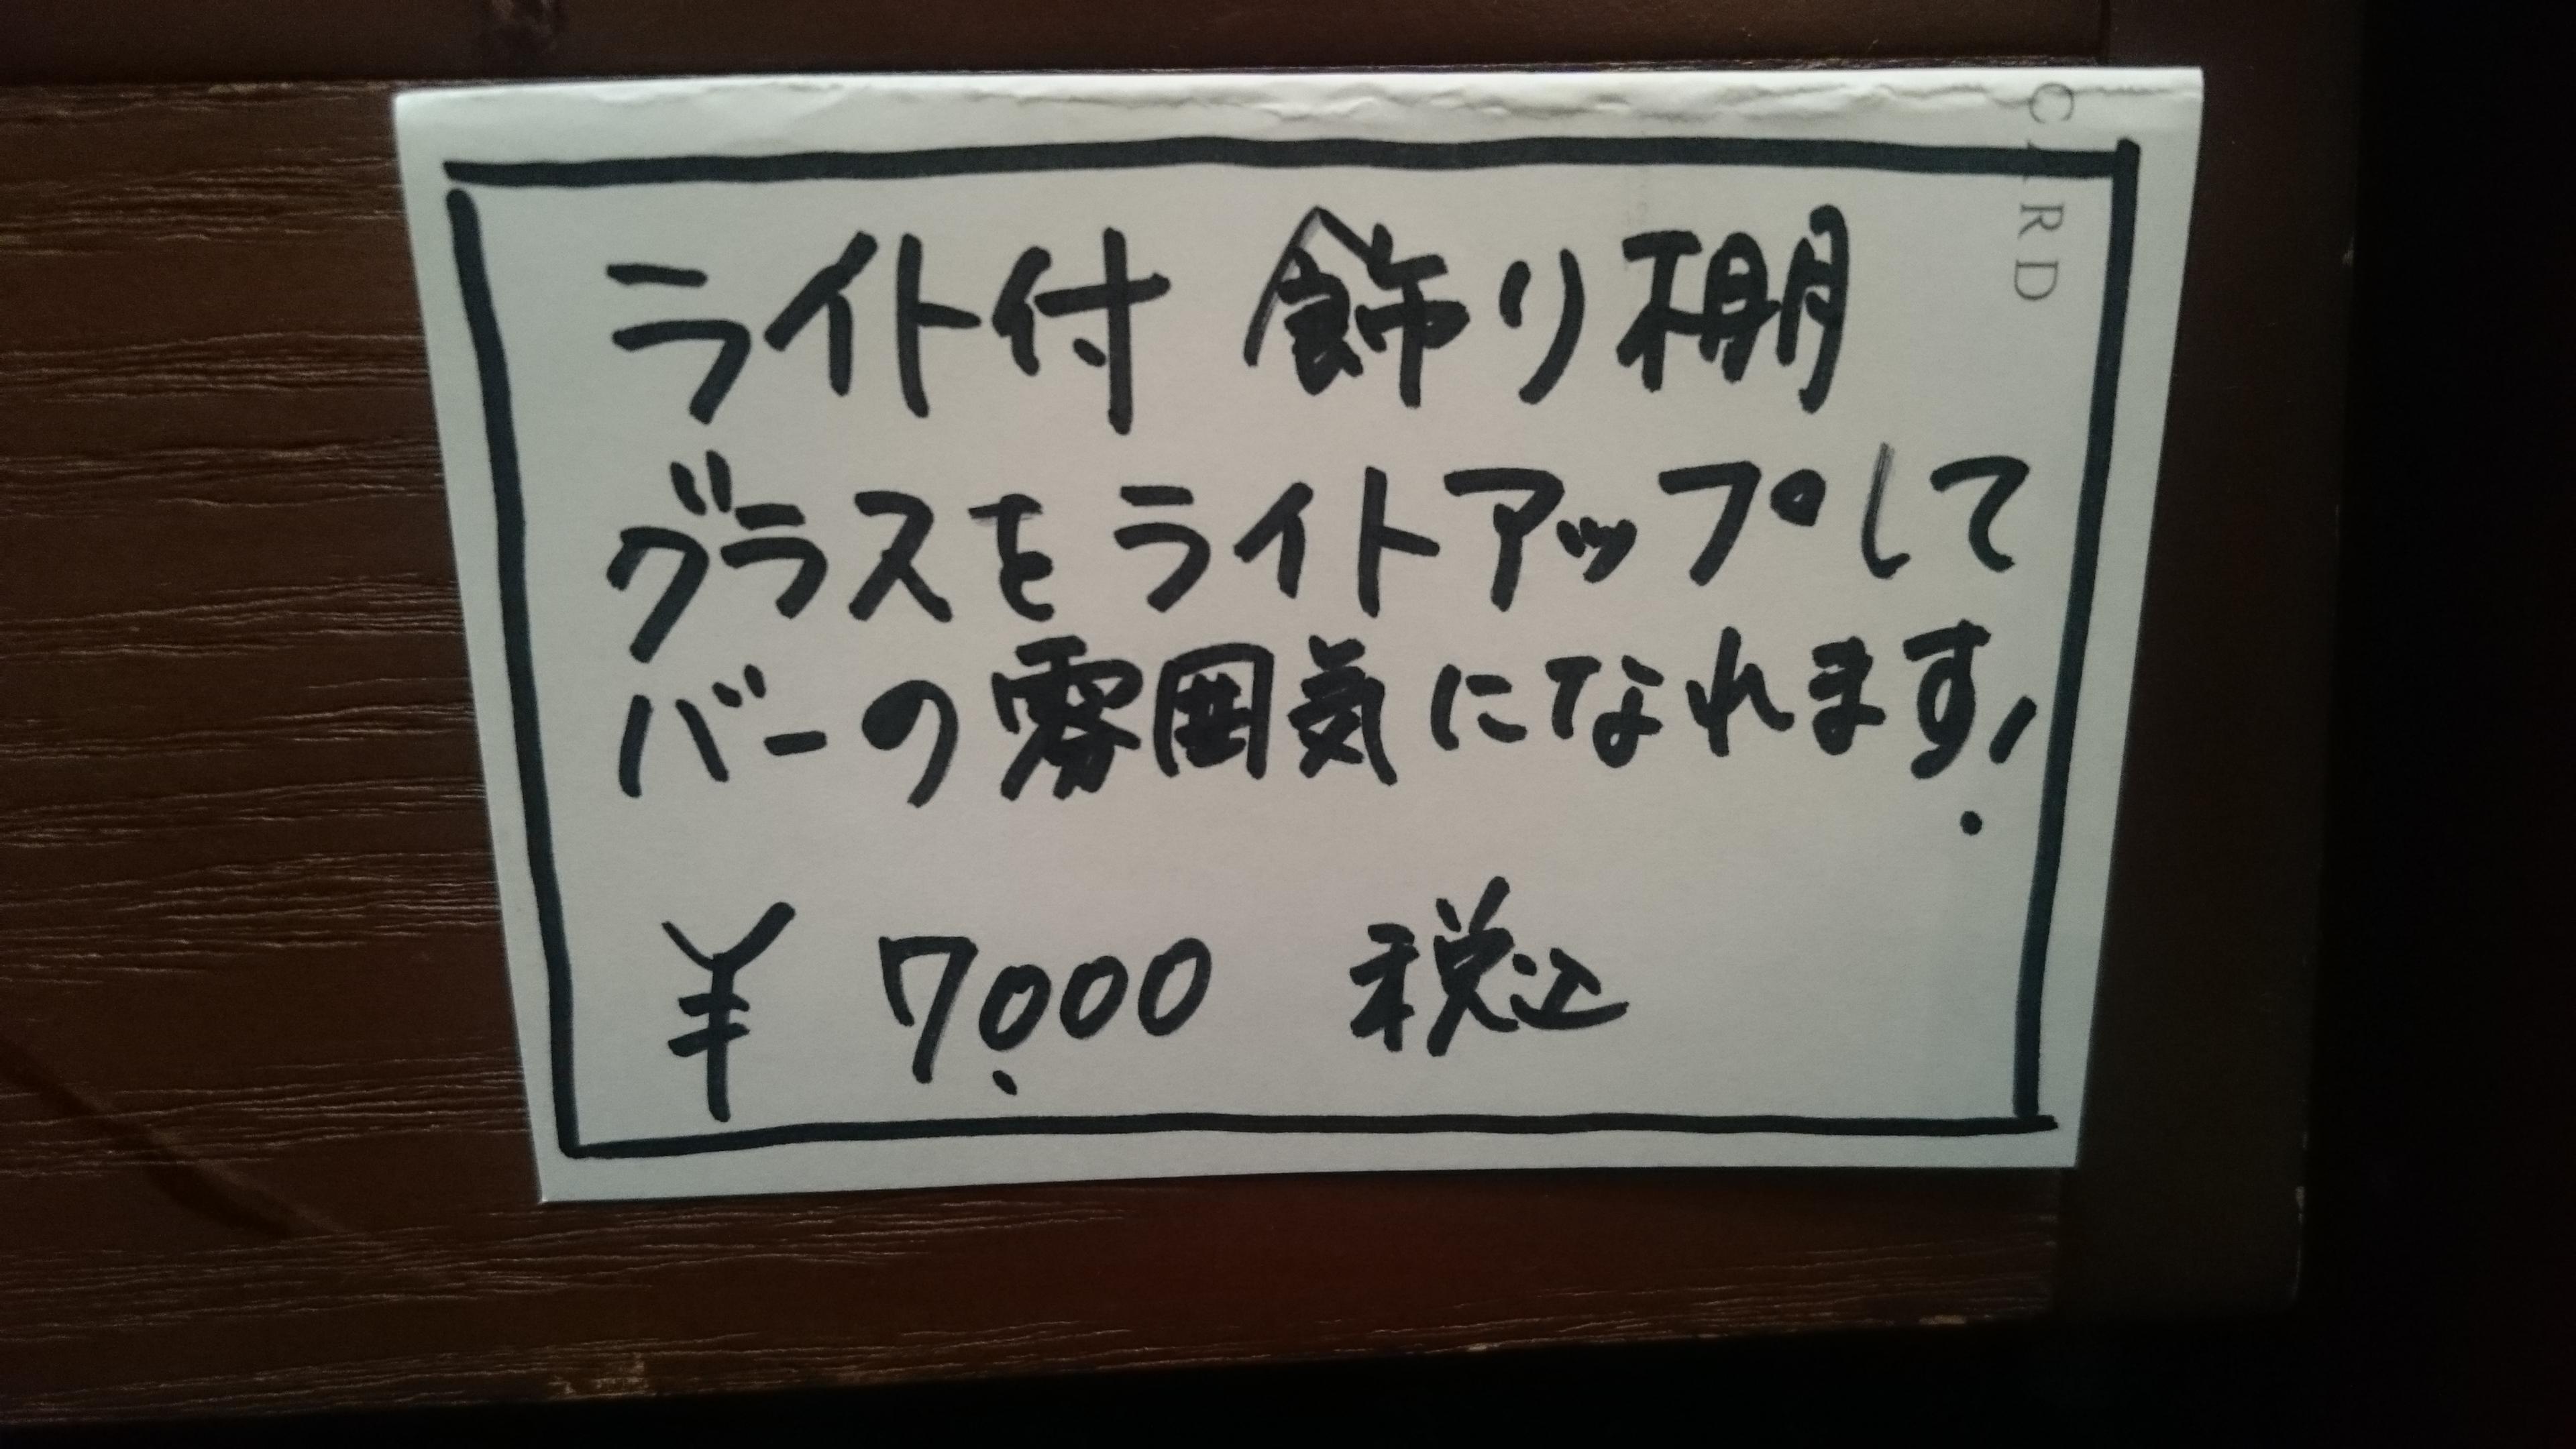 ライト付 飾り棚
グラスをライトアップして
バーの雰囲気になれます!
¥7,000 税込
CARD